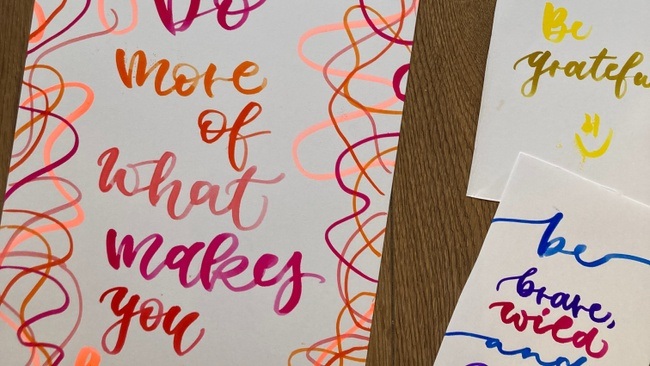 Do
more
of
what
makes
you
Be
grateful
be
brave,
wild
and